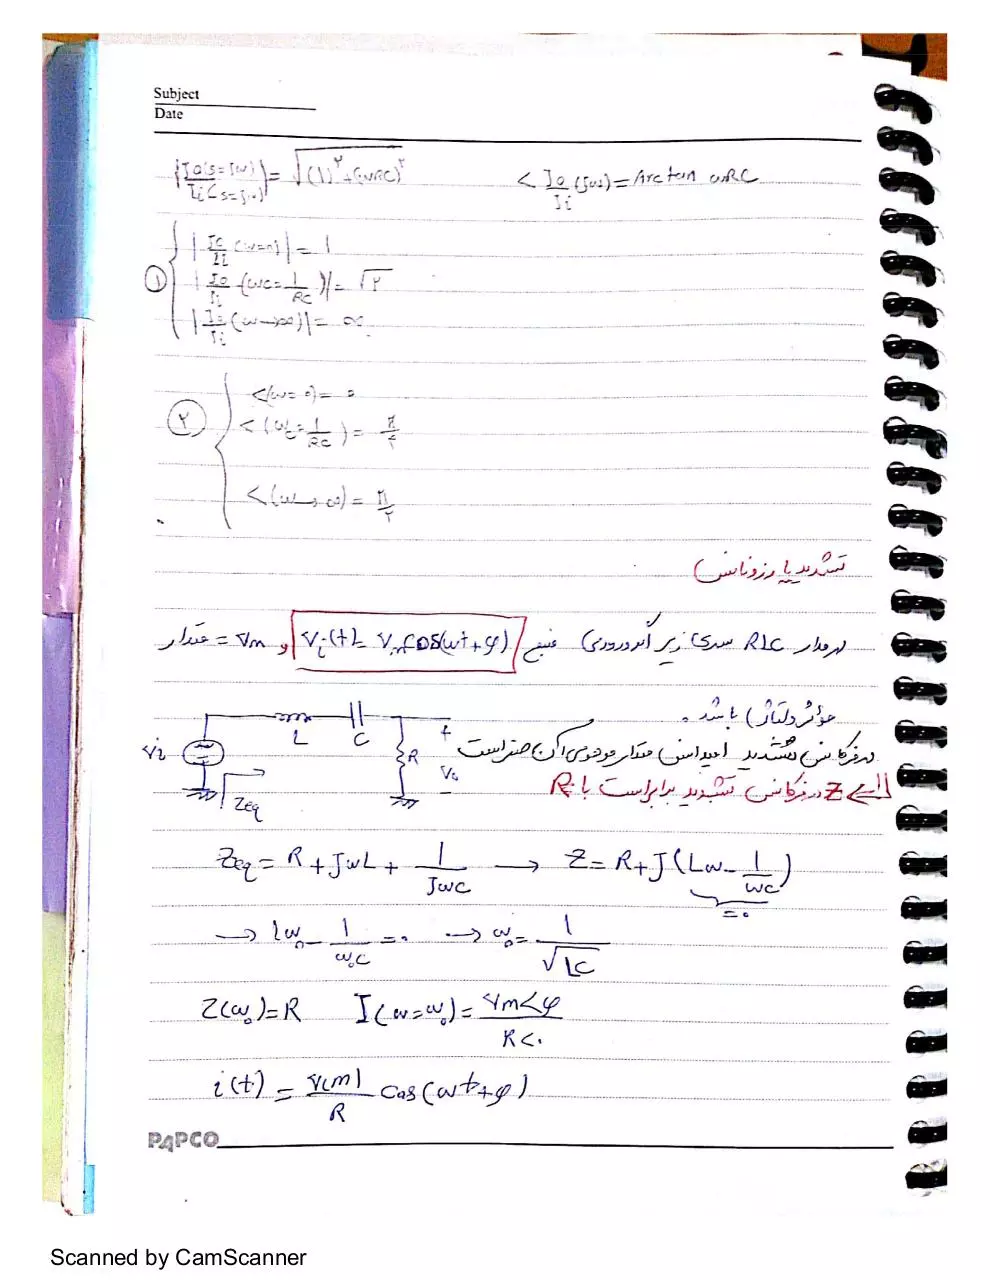 Subject
Date
|Io(s=jω) / Ii(s=jω)| = √((1)^۲ + (ωRC)^۲)    < Io/Ii (jω) = Arctan ωRC
① { |Io/Ii (ω=۰)| = 1
|Io/Ii (ωc = 1/RC)| = √۲
|Io/Ii (ω→∞)| = ∞
② { <(ω=۰) = ۰
<(ωc = 1/RC) = π/۴
<(ω→∞) = π/۲
تشدید یا رزونانس
در مدار RLC سری زیر اگر ورودی منبع Vi(t) = Vm cos(ωt+φ) و Vm = مقدار
مؤثر ولتاژ باشد.
در فرکانس تشدید امپدانس مقدار موهومی آن صفر است
Z در فرکانس تشدید برابر است با R
Vi L C R + Vo − Zeq
Zeq = R + jωL + 1/jωC → Z = R + j(Lω − 1/ωC) = ۰
→ Lω۰ − 1/ω۰C = ۰ → ω۰ = 1/√LC
Z(ω۰) = R    I(ω=ω۰) = Vm<φ / R<۰
i(t) = V(m)/R Cos(ωt+φ)
PAPCO
Scanned by CamScanner